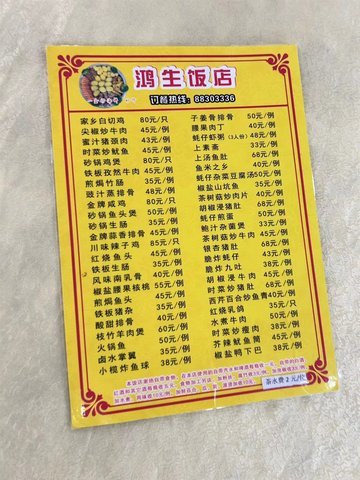 鸿生饭店
订餐热线：88303336
家乡白切鸡 80元/只
尖椒炒牛肉 45元/例
蜜汁猪颈肉 43元/例
时菜炒鱿鱼 45元/例
砂锅鸡煲 80元/只
铁板孜然牛肉 45元/例
煎焗竹肠 35元/例
豉汁蒸排骨 48元/例
金牌咸鸡 80元/只
砂锅鱼头煲 50元/例
砂锅生肠 50元/例
金牌蒜香排骨 45元/例
川味辣子鸡 85元/只
红烧鱼头 45元/例
铁板生肠 35元/例
风味南乳骨 40元/例
椒盐腰果核桃 55元/例
煎焗鱼头 45元/例
铁板猪杂 35元/例
酸甜排骨 40元/例
枝竹羊肉煲
火锅鱼 50元/例
卤水掌翼 35元/例
小榄炸鱼球 38元/例
子姜骨排骨 50元/例
腰果肉丁 40元/例
蚝仔虾粥（3人份）48元/例
上素斋 33元/例
上汤鱼肚 68元/例
鱼米之乡 40元/例
蚝仔杂菜豆腐汤 50元/例
椒盐山坑鱼 35元/例
茶树菇炒肉片 40元/例
胡椒浸猪肚 68元/例
蚝仔煎蛋 50元/例
鲍汁杂菌煲 50元/例
茶树菇炒牛肉 45元/例
银杏猪肚 68元/例
脆炸蚝仔 43元/例
脆炸九吐 38元/例
胡椒浸牛肉 50元/例
时菜猪肚 68元/例
西芹百合炒鱼青 40元/例
红烧乳鸽 35元/只
水煮牛肉 50元/例
时菜炒瘦肉 38元/例
芥辣鱿鱼筒 45元/例
椒盐鸭下巴 38元/例
茶水费2元/位